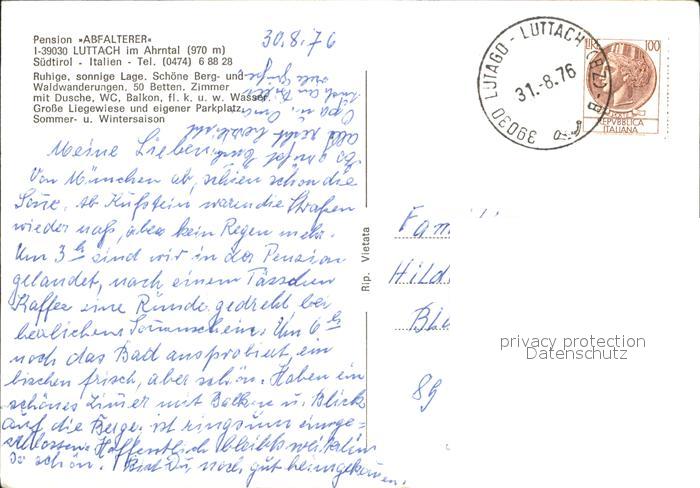 Pension »ABFALTERER«
I-39030 LUTTACH im Ahrntal (970 m)
Südtirol - Italien - Tel. (0474) 6 88 28
Ruhige, sonnige Lage. Schöne Berg- und
Waldwanderungen. 50 Betten. Zimmer
mit Dusche, WC, Balkon, fl. k. u. w. Wasser.
Große Liegewiese und eigener Parkplatz.
Sommer- u. Wintersaison
30.8.76
Meine Lieben
Von München ab, schien schon die
Sonne. Ab Kufstein waren die Straßen
wieder naß, aber kein Regen mehr.
Um 3 h sind wir in der Pension
gelandet, nach einem Tässchen
Kaffee eine Runde gedreht bei
herrlichem Sonnenschein. Um 6 h
noch das Bad ausprobiert, ein
bischen frisch, aber schön. Haben ein
schönes Zimmer mit Balkon u. Blick
auf die Berge, ist ringsum einge-
schlossen. Hoffentlich bleibts weiterhin
so schön. Bist Du noch gut heimgekommen.
Rip. Vietata
39030 LUTAGO - LUTTACH (BZ) - B
31.-8.76
LIRE 100
REPVBBLICA
ITALIANA
Fam
Hild
Bl
89
privacy protection
Datenschutz